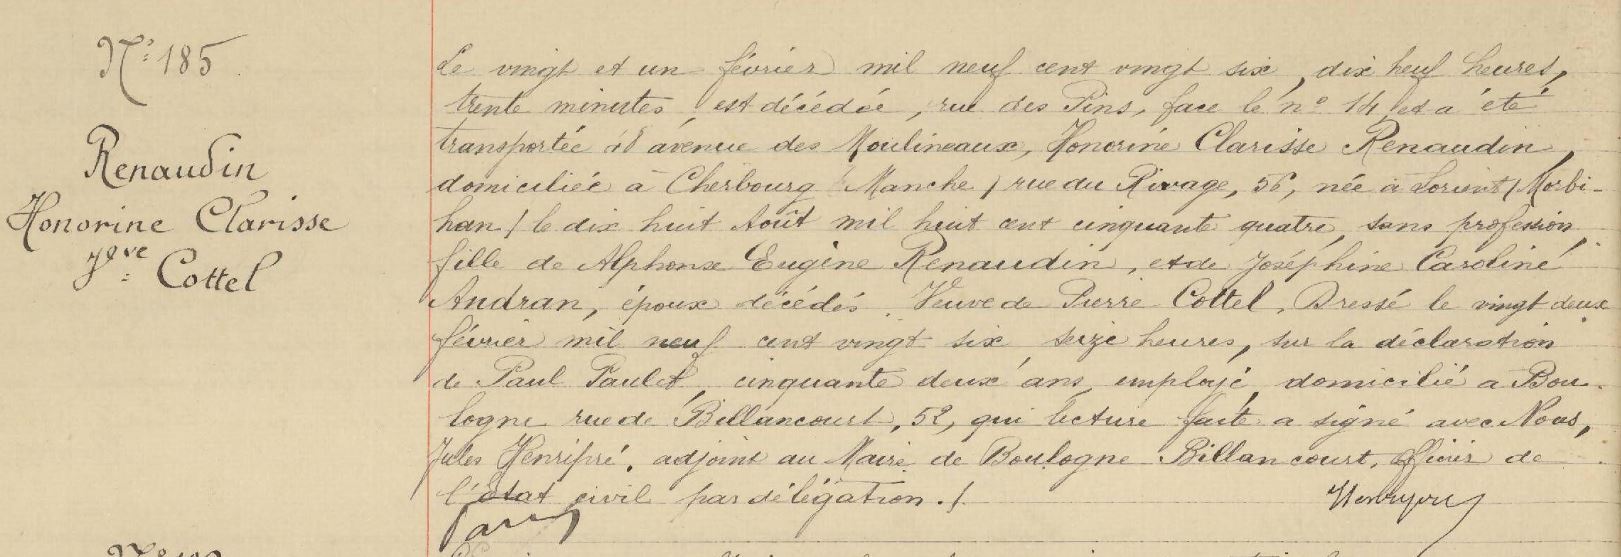 N° 185
Renaudin
Honorine Clarisse
Vve Cottel
Le vingt et un février mil neuf cent vingt six, dix neuf heures,
trente minutes, est décédée, rue des Pins, face le n° 14, et a été
transportée avenue des Moulineaux, Honorine Clarisse Renaudin,
domiciliée à Cherbourg (Manche) rue du Rivage, 56, née à Lorient (Morbi-
han) le dix huit Août mil huit cent cinquante quatre, sans profession,
fille de Alphonse Eugène Renaudin, et de Joséphine Caroline
Audran, époux décédés. Veuve de Pierre Cottel. Dressé le vingt deux
février mil neuf cent vingt six, seize heures, sur la déclaration
de Paul Paulet, cinquante deux ans, employé, domicilié à Bou-
logne rue de Billancourt, 52, qui lecture faite a signé avec Nous,
Jules Henripré, adjoint au Maire de Boulogne Billancourt, Officier de
l'État civil par délégation./.